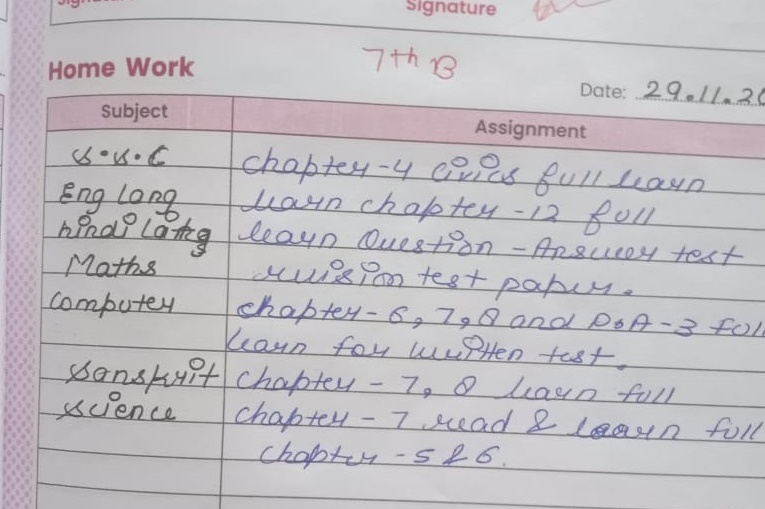 Signature
7th B
Home Work
Date: 29.11.20
Subject
Assignment
S.S.C chapter-4 civics full learn
Eng lang learn chapter-12 full
hindi lang learn Question-Answer test
Maths revision test paper.
computer chapter-6,7,8 and P.A-3 full
learn for written test.
sanskrit chapter-7,8 learn full
science chapter-7 read & learn full
chapter-5 & 6.